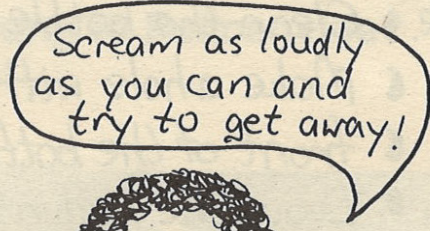 Scream as loudly
as you can and
try to get away!